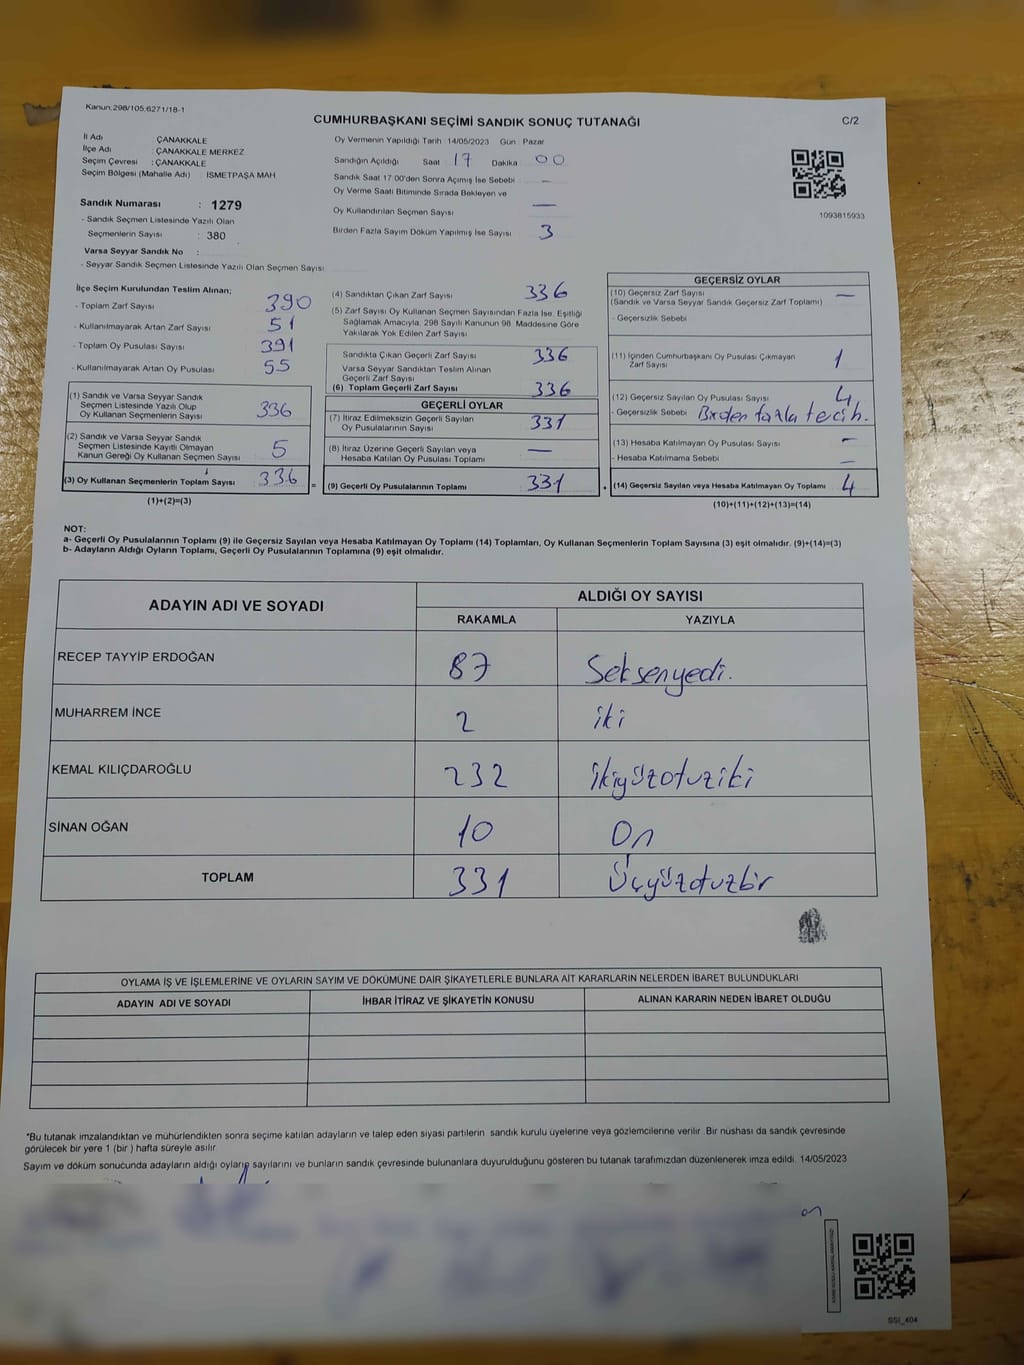 Kanun:298/105,6271/18-1
CUMHURBAŞKANI SEÇİMİ SANDIK SONUÇ TUTANAĞI
C/2
İl Adı ÇANAKKALE
İlçe Adı : ÇANAKKALE MERKEZ
Seçim Çevresi : ÇANAKKALE
Seçim Bölgesi (Mahalle Adı) : İSMETPAŞA MAH
Sandık Numarası : 1279
- Sandık Seçmen Listesinde Yazılı Olan
Seçmenlerin Sayısı : 380
Varsa Seyyar Sandık No :
- Seyyar Sandık Seçmen Listesinde Yazılı Olan Seçmen Sayısı
Oy Vermenin Yapıldığı Tarih 14/05/2023 Gün : Pazar
Sandığın Açıldığı Saat : 17 Dakika : 00
Sandık Saat 17:00'den Sonra Açımış İse Sebebi : —
Oy Verme Saati Bitiminde Sırada Bekleyen ve
Oy Kullandırılan Seçmen Sayısı —
Birden Fazla Sayım Döküm Yapılmış İse Sayısı 3
1093815933
İlçe Seçim Kurulundan Teslim Alınan;
- Toplam Zarf Sayısı 390
- Kullanılmayarak Artan Zarf Sayısı 51
- Toplam Oy Pusulası Sayısı 391
- Kullanılmayarak Artan Oy Pusulası 55
(1) Sandık ve Varsa Seyyar Sandık
Seçmen Listesinde Yazılı Olup
Oy Kullanan Seçmenlerin Sayısı 336
(2) Sandık ve Varsa Seyyar Sandık
Seçmen Listesinde Kayıtlı Olmayan
Kanun Gereği Oy Kullanan Seçmen Sayısı 5
(3) Oy Kullanan Seçmenlerin Toplam Sayısı 336 =
(1)+(2)=(3)
(4) Sandıktan Çıkan Zarf Sayısı 336
(5) Zarf Sayısı Oy Kullanan Seçmen Sayısından Fazla İse, Eşitliği
Sağlamak Amacıyla, 298 Sayılı Kanunun 98. Maddesine Göre
Yakılarak Yok Edilen Zarf Sayısı
Sandıkta Çıkan Geçerli Zarf Sayısı 336
Varsa Seyyar Sandıktan Teslim Alınan
Geçerli Zarf Sayısı
(6) Toplam Geçerli Zarf Sayısı 336
GEÇERLİ OYLAR
(7) İtiraz Edilmeksizin Geçerli Sayılan
Oy Pusulalarının Sayısı 331
(8) İtiraz Üzerine Geçerli Sayılan veya
Hesaba Katılan Oy Pusulası Toplamı —
(9) Geçerli Oy Pusulalarının Toplamı 331 +
GEÇERSİZ OYLAR
(10) Geçersiz Zarf Sayısı —
(Sandık ve Varsa Seyyar Sandık Geçersiz Zarf Toplamı)
- Geçersizlik Sebebi
(11) İçinden Cumhurbaşkanı Oy Pusulası Çıkmayan
Zarf Sayısı 1
(12) Geçersiz Sayılan Oy Pusulası Sayısı 4
- Geçersizlik Sebebi Birden fazla tecih.
(13) Hesaba Katılmayan Oy Pusulası Sayısı —
- Hesaba Katılmama Sebebi —
(14) Geçersiz Sayılan veya Hesaba Katılmayan Oy Toplamı 4
(10)+(11)+(12)+(13)=(14)
NOT:
a- Geçerli Oy Pusulalarının Toplamı (9) ile Geçersiz Sayılan veya Hesaba Katılmayan Oy Toplamı (14) Toplamları, Oy Kullanan Seçmenlerin Toplam Sayısına (3) eşit olmalıdır. (9)+(14)=(3)
b- Adayların Aldığı Oyların Toplamı, Geçerli Oy Pusulalarının Toplamına (9) eşit olmalıdır.
ADAYIN ADI VE SOYADI ALDIĞI OY SAYISI
RAKAMLA YAZIYLA
RECEP TAYYİP ERDOĞAN 87 Seksenyedi.
MUHARREM İNCE 2 iki
KEMAL KILIÇDAROĞLU 232 ikiyüzotuziki
SİNAN OĞAN 10 On
TOPLAM 331 Üçyüzotuzbir
OYLAMA İŞ VE İŞLEMLERİNE VE OYLARIN SAYIM VE DÖKÜMÜNE DAİR ŞİKAYETLERLE BUNLARA AİT KARARLARIN NELERDEN İBARET BULUNDUKLARI
ADAYIN ADI VE SOYADI İHBAR İTİRAZ VE ŞİKAYETİN KONUSU ALINAN KARARIN NEDEN İBARET OLDUĞU
*Bu tutanak imzalandıktan ve mühürlendikten sonra seçime katılan adayların ve talep eden siyasi partilerin sandık kurulu üyelerine veya gözlemcilerine verilir. Bir nüshası da sandık çevresinde
görülecek bir yere 1 (bir ) hafta süreyle asılır.
Sayım ve döküm sonucunda adayların aldığı oyların sayılarını ve bunların sandık çevresinde bulunanlara duyurulduğunu gösteren bu tutanak tarafımızdan düzenlenerek imza edildi. 14/05/2023
SSI_404